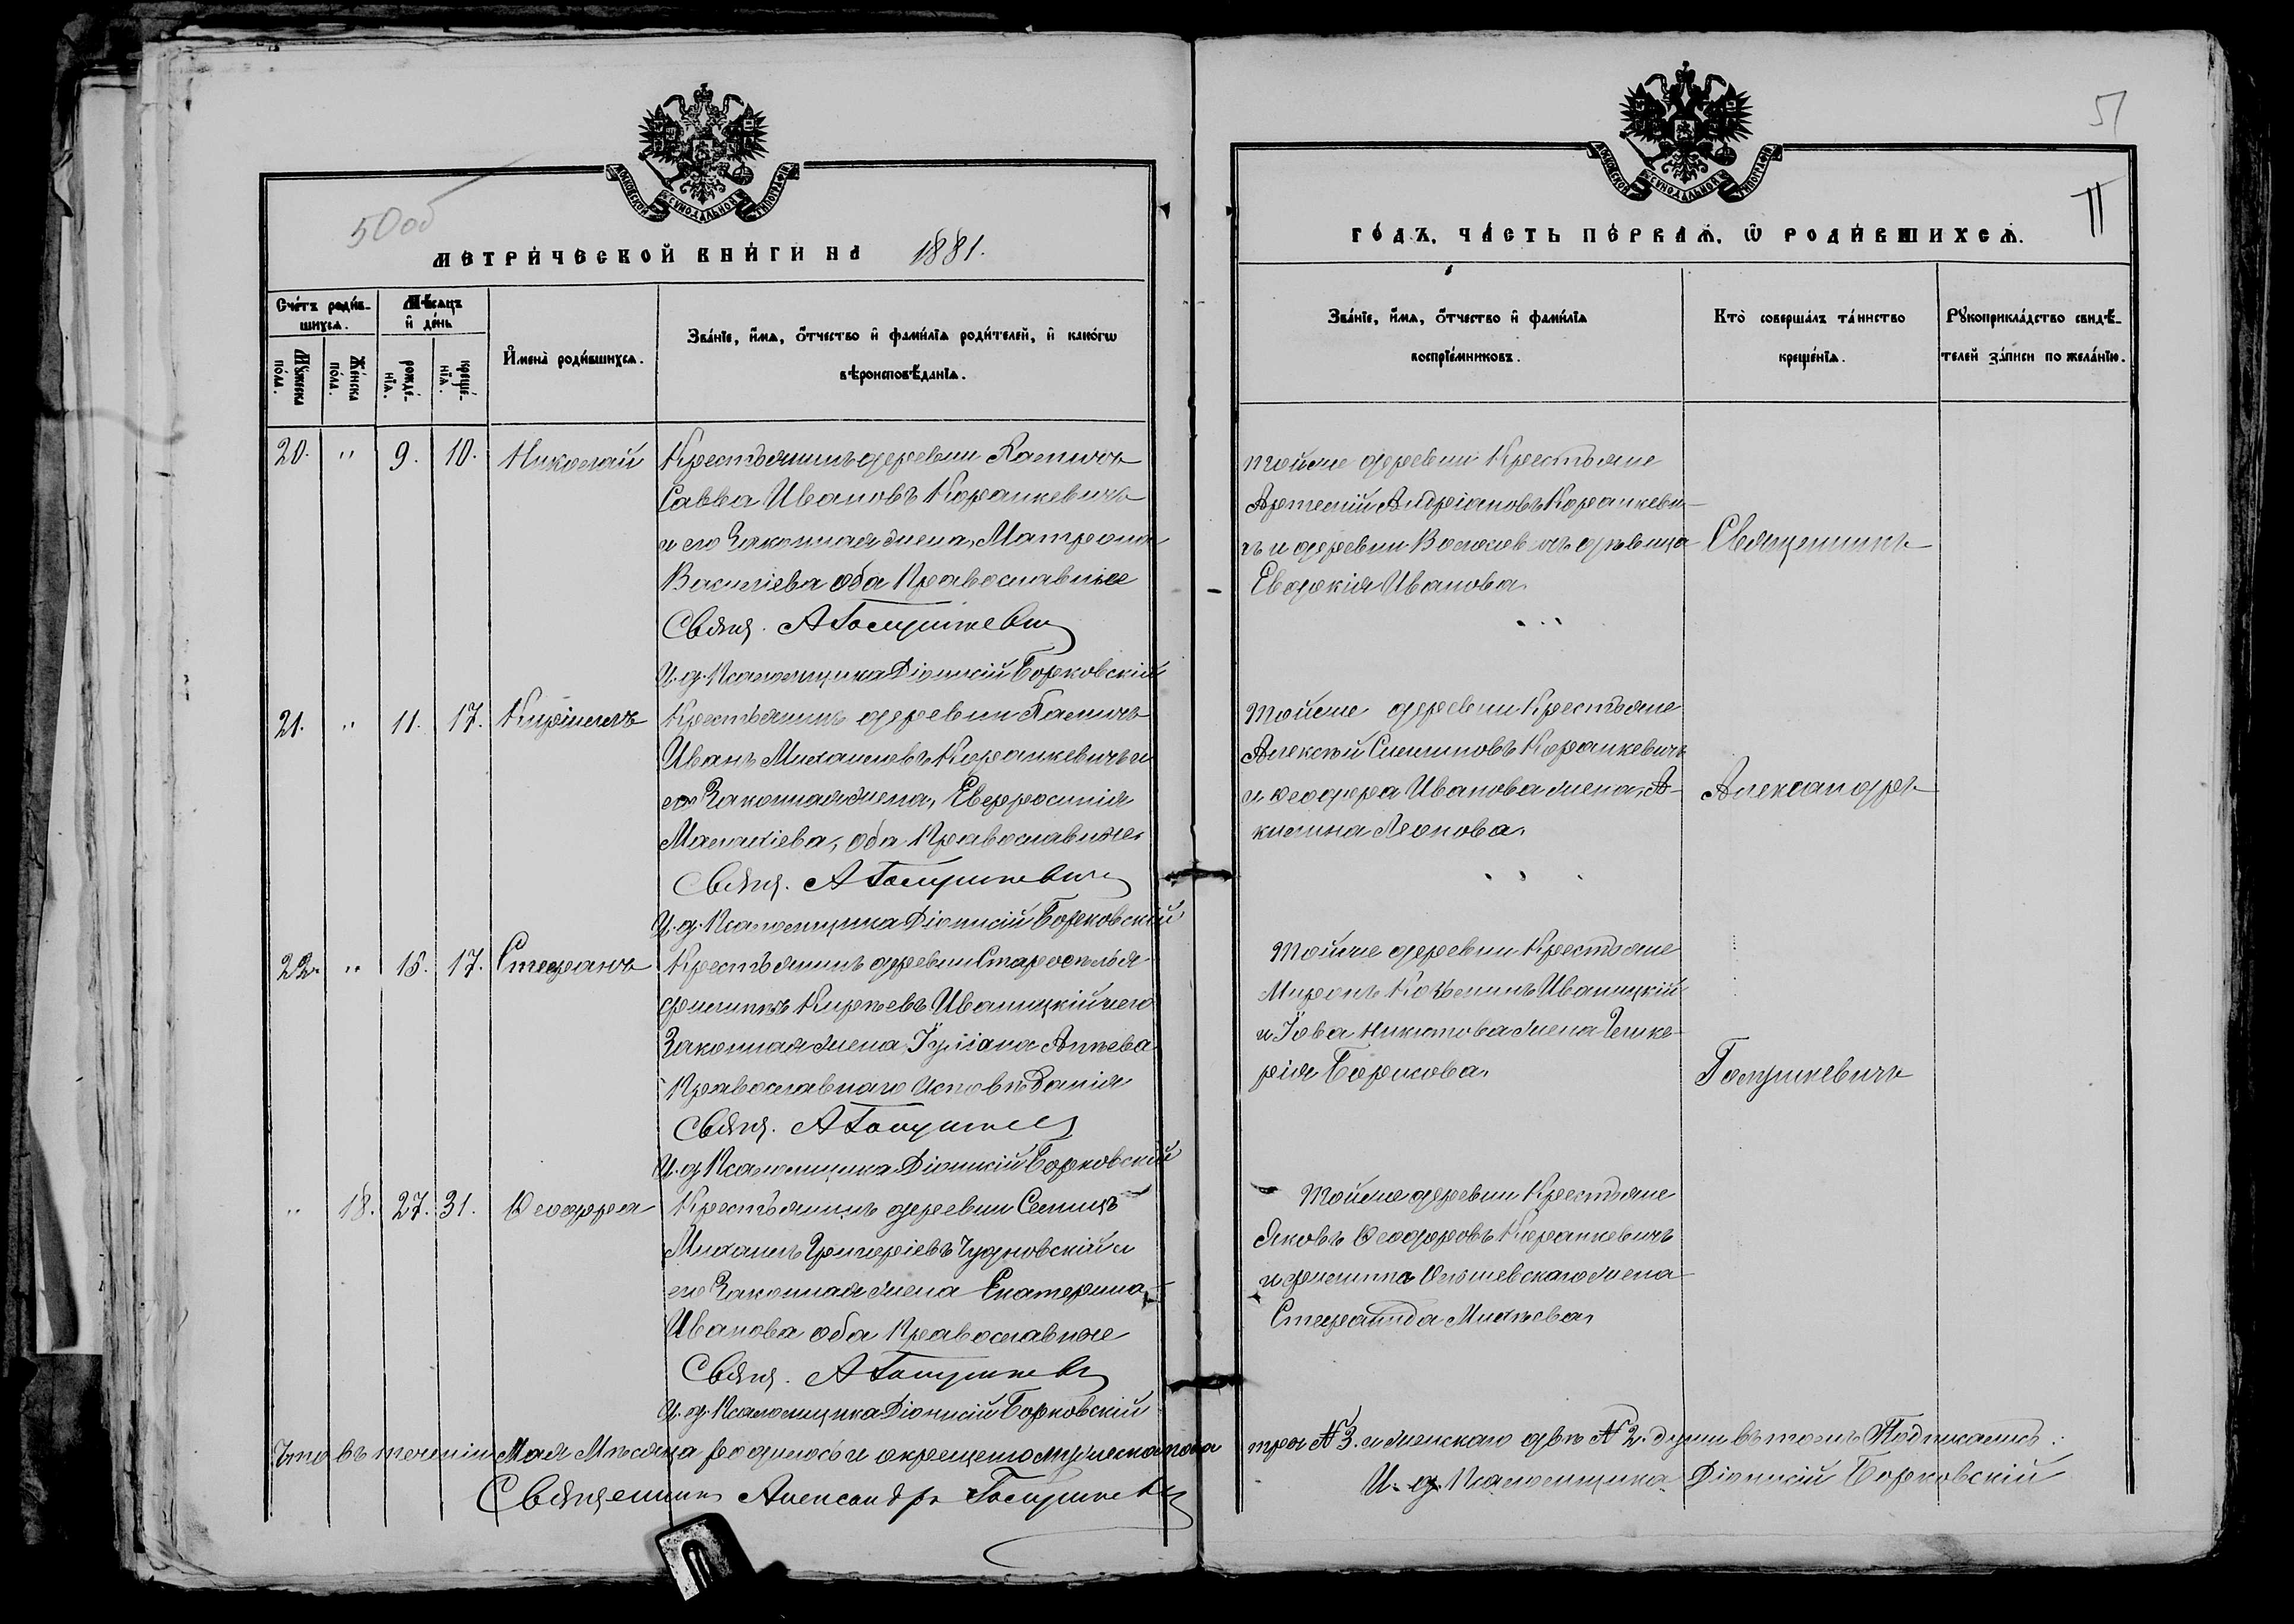 МОСКОВСКОЙ СѴНОДАЛЬНОЙ ТИПОГРАФІИ
50об
МЕТРИ́ЧЕСКОЙ КНИ́ГИ НА 1881.
Сче́тъ роди́в-
шихся.
Мѣ́сяцъ
и҆ де́нь
Мꙋ́жеска по́ла.
Же́нска по́ла.
рожде́-нїѧ.
креще́-нїѧ.
И҆мена̀ роди́вшихсѧ.
Зва́нїе, и҆́мѧ, ѻ҆́тчество и҆ фами́лїѧ роди́телей, и҆ како́гѡ
вѣроисповѣ́данїѧ.
20. " 9. 10. Николай
Крестьянинъ деревни
Савва Ивановъ Коранкевичъ
и его Законная жена, Матрона
Василіева оба Православные
Свящ. А Голушкевич
И. д. Псаломщика Діонисій Борковскій
21. " 11. 17. Кирилъ
Крестьянинъ деревни
Иванъ Михаиловъ Коранкевичъ и
его Законная жена, Евфросинія
оба Православные
Свящ. А Голушкевич
И. д. Псаломщика Діонисій Борковскій
22. " 15. 17. Стефанъ
Крестьянинъ деревни Староселья
Филиппъ Иваницкій и его
Законная жена Іуліана
Православнаго Исповѣданія
Свящ. А Голушкев
И. д. Псаломщика Діонисій Борковскій
" 18. 27. 31. Ѳеодора
Крестьянинъ деревни
Михаилъ Григоріевъ Чудновскій и
его Законная жена Екатерина
Иванова оба Православные
Свящ. А Голушкев
И. д. Псаломщика Діонисій Борковскій
Что въ теченіи Мая Мѣсяца родилось и окрещено мужеска пола
Священникъ Александръ Голушкевич
51
11
МОСКОВСКОЙ СѴНОДАЛЬНОЙ ТИПОГРАФІИ
ГО́ДЪ, ЧА́СТЬ ПЕ́РВАѦ, Ѽ РОДИ́ВШИХСѦ.
Зва́нїе, и҆́мѧ, ѻ҆́тчество и҆ фами́лїѧ
воспрїе́мниковъ.
Кто̀ соверша́лъ та́инство
креще́нїѧ.
Рꙋкоприкла́дство свидѣ́-
телей за́писи по жела́нїю.
тойже деревни Крестьяне
Артемій Андріановъ Коранкеви-
чъ и деревни дѣвица
Евдокія Иванова.
тойже деревни Крестьяне
Алексѣй Коранкевичъ
и Ѳеодора Иванова жена, А-
килина Леонова.
Тойже деревни Крестьяне
Миронъ Козьминъ Иваницкій
и Іова Никитова жена Глике-
рія Борисова.
Тойже деревни Крестьяне
Яковъ Ѳеодоровъ Коранкевичъ
и Филиппа жена
Священникъ
Александръ
Голушкевичъ
три № 3. и женскаго двѣ № 2. души въ томъ Подписались:
И. д. Псаломщика Діонисій Борковскій